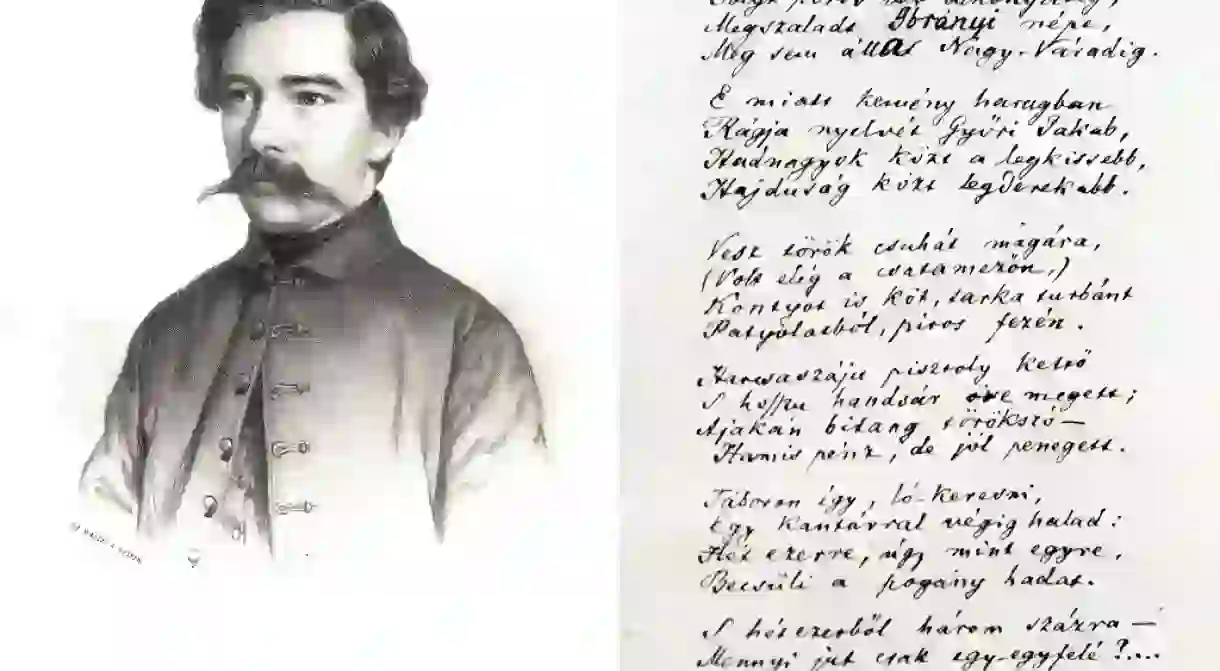 Megszaladt Ibrányi népe,
Meg sem állt Nagy-Váradig.
E miatt kemény haragban
Rágja nyelvét Győri Jakab,
Hadnagyok közt a legkissebb,
Hajduság közt legderekabb.
Vesz török csuhát magára,
(Volt elég a csatamezőn,)
Kontyot is köt, tarka turbánt
Patyolatból, piros fezén.
Harcsaszáju pisztoly kettő
S hosszu handsár öve megett;
Ajakán bitang törökszó —
Hamis pénz, de jól penegett.
Táboron így, ló-keresni,
Egy kantárral végig halad:
Hét ezerre, úgy mint egyre,
Becsüli a pogány hadat.
S hétezerből három százra —
Mennyi jut csak egy-egyfelé?....